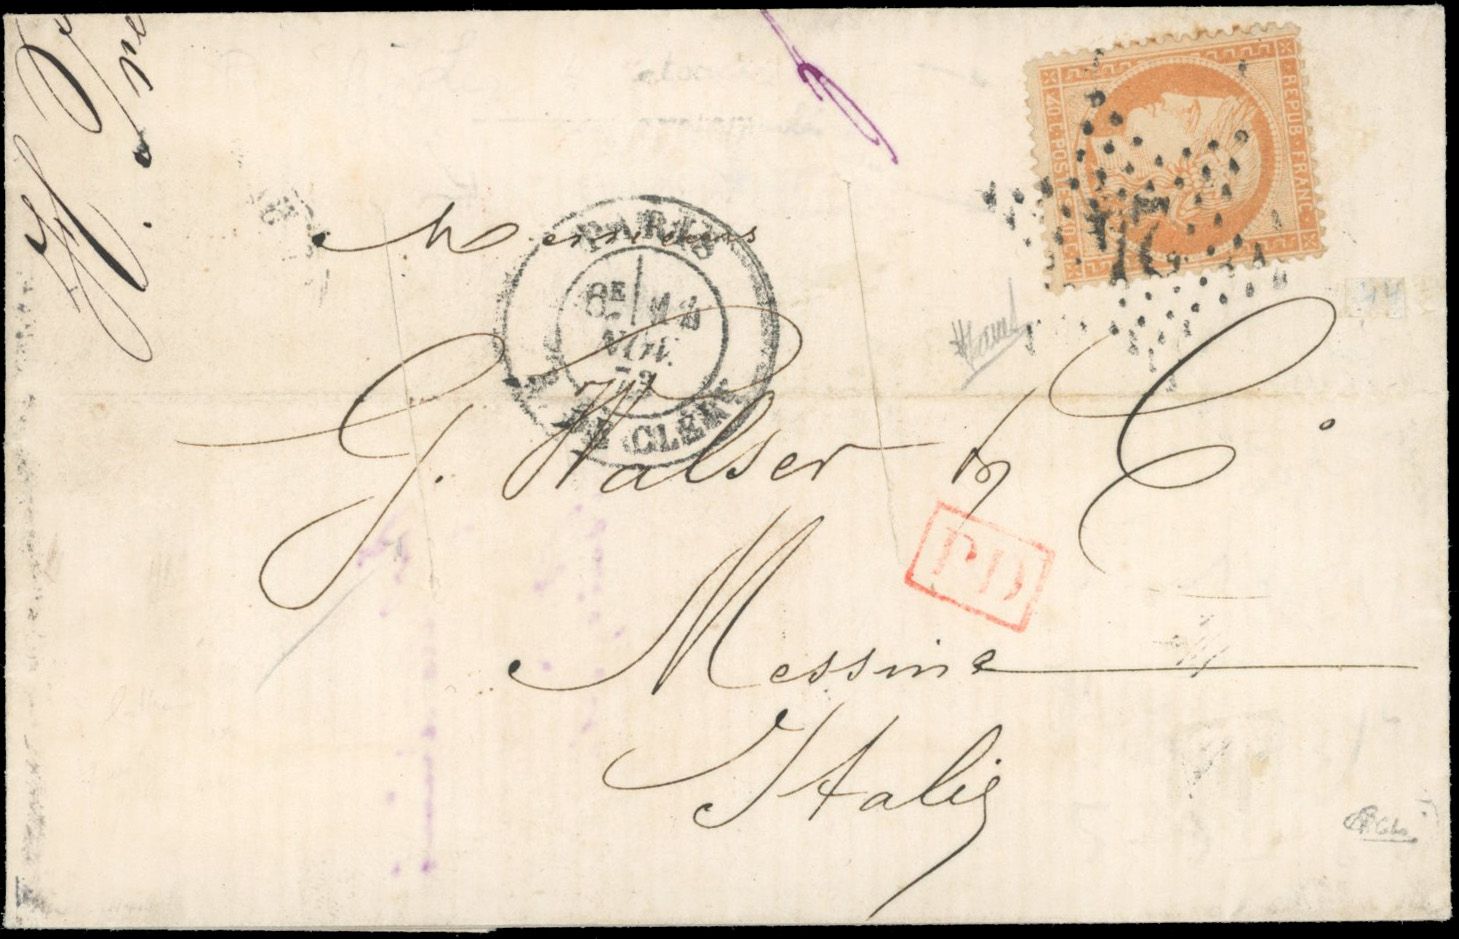 REPUB. FRANC.
40 C. POSTES 40 C.
PARIS
6E
NOV.
72
DE CLERY
Messieurs
G. Walser & C.
PD
Messine
Italie